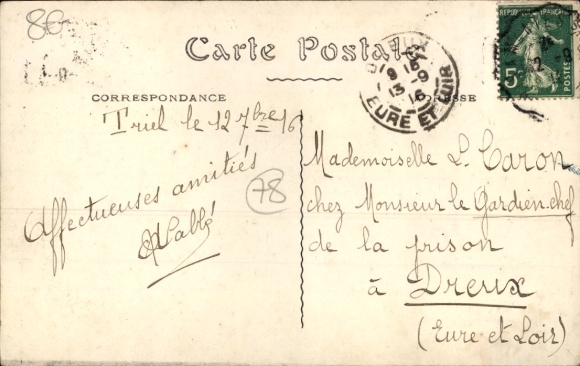 86
Carte Postale
CORRESPONDANCE
ADRESSE
REPUBLIQUE FRANÇAISE
5c
POSTES
DREUX
9
13 - 9
16
EURE ET LOIR
Triel le 12 7bre 16
Affectueuses amitiés
78
Mademoiselle L. Caron
chez Monsieur le Gardien-chef
de la prison
à Dreux
(Eure et Loir)